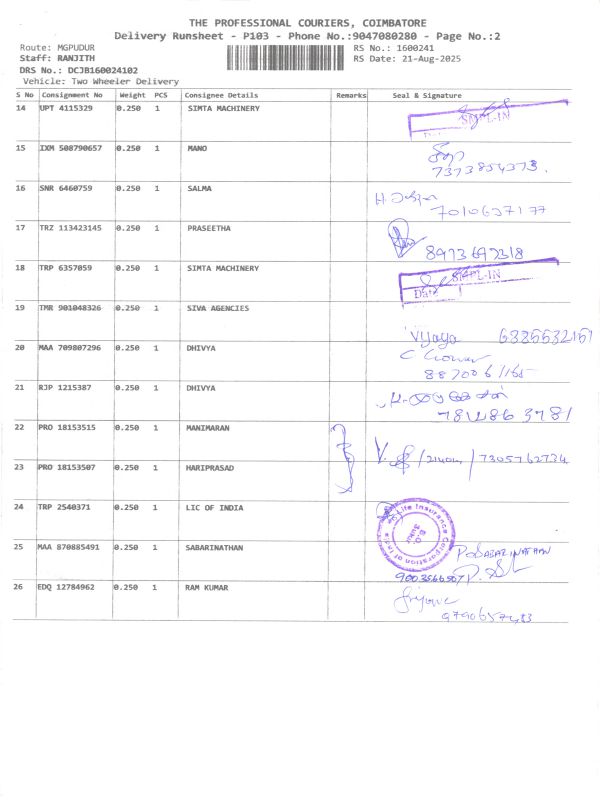 THE PROFESSIONAL COURIERS, COIMBATORE
Delivery Runsheet - P103 - Phone No.:9047080280 - Page No.:2
Route: MGPUDUR RS No.: 1600241
Staff: RANJITH RS Date: 21-Aug-2025
DRS No.: DCJB160024102
Vehicle: Two Wheeler Delivery
S No Consignment No Weight PCS Consignee Details Remarks Seal & Signature
14 UPT 4115329 0.250 1 SIMTA MACHINERY
SMPL-IN
15 IXM 508790657 0.250 1 MANO
7373854373.
16 SNR 6460759 0.250 1 SALMA
7010637177
17 TRZ 113423145 0.250 1 PRASEETHA
8973697318
18 TRP 6357059 0.250 1 SIMTA MACHINERY
SMPL-IN
Date
19 TMR 901048326 0.250 1 SIVA AGENCIES
Vijaya 6385532157
20 MAA 709807296 0.250 1 DHIVYA
21 RJP 1215387 0.250 1 DHIVYA
22 PRO 18153515 0.250 1 MANIMARAN
7305762734
23 PRO 18153507 0.250 1 HARIPRASAD
24 TRP 2540371 0.250 1 LIC OF INDIA
Life Insurance Corporation of India
25 MAA 870885491 0.250 1 SABARINATHAN
P. SABARINATHAN
26 EDQ 12784962 0.250 1 RAM KUMAR